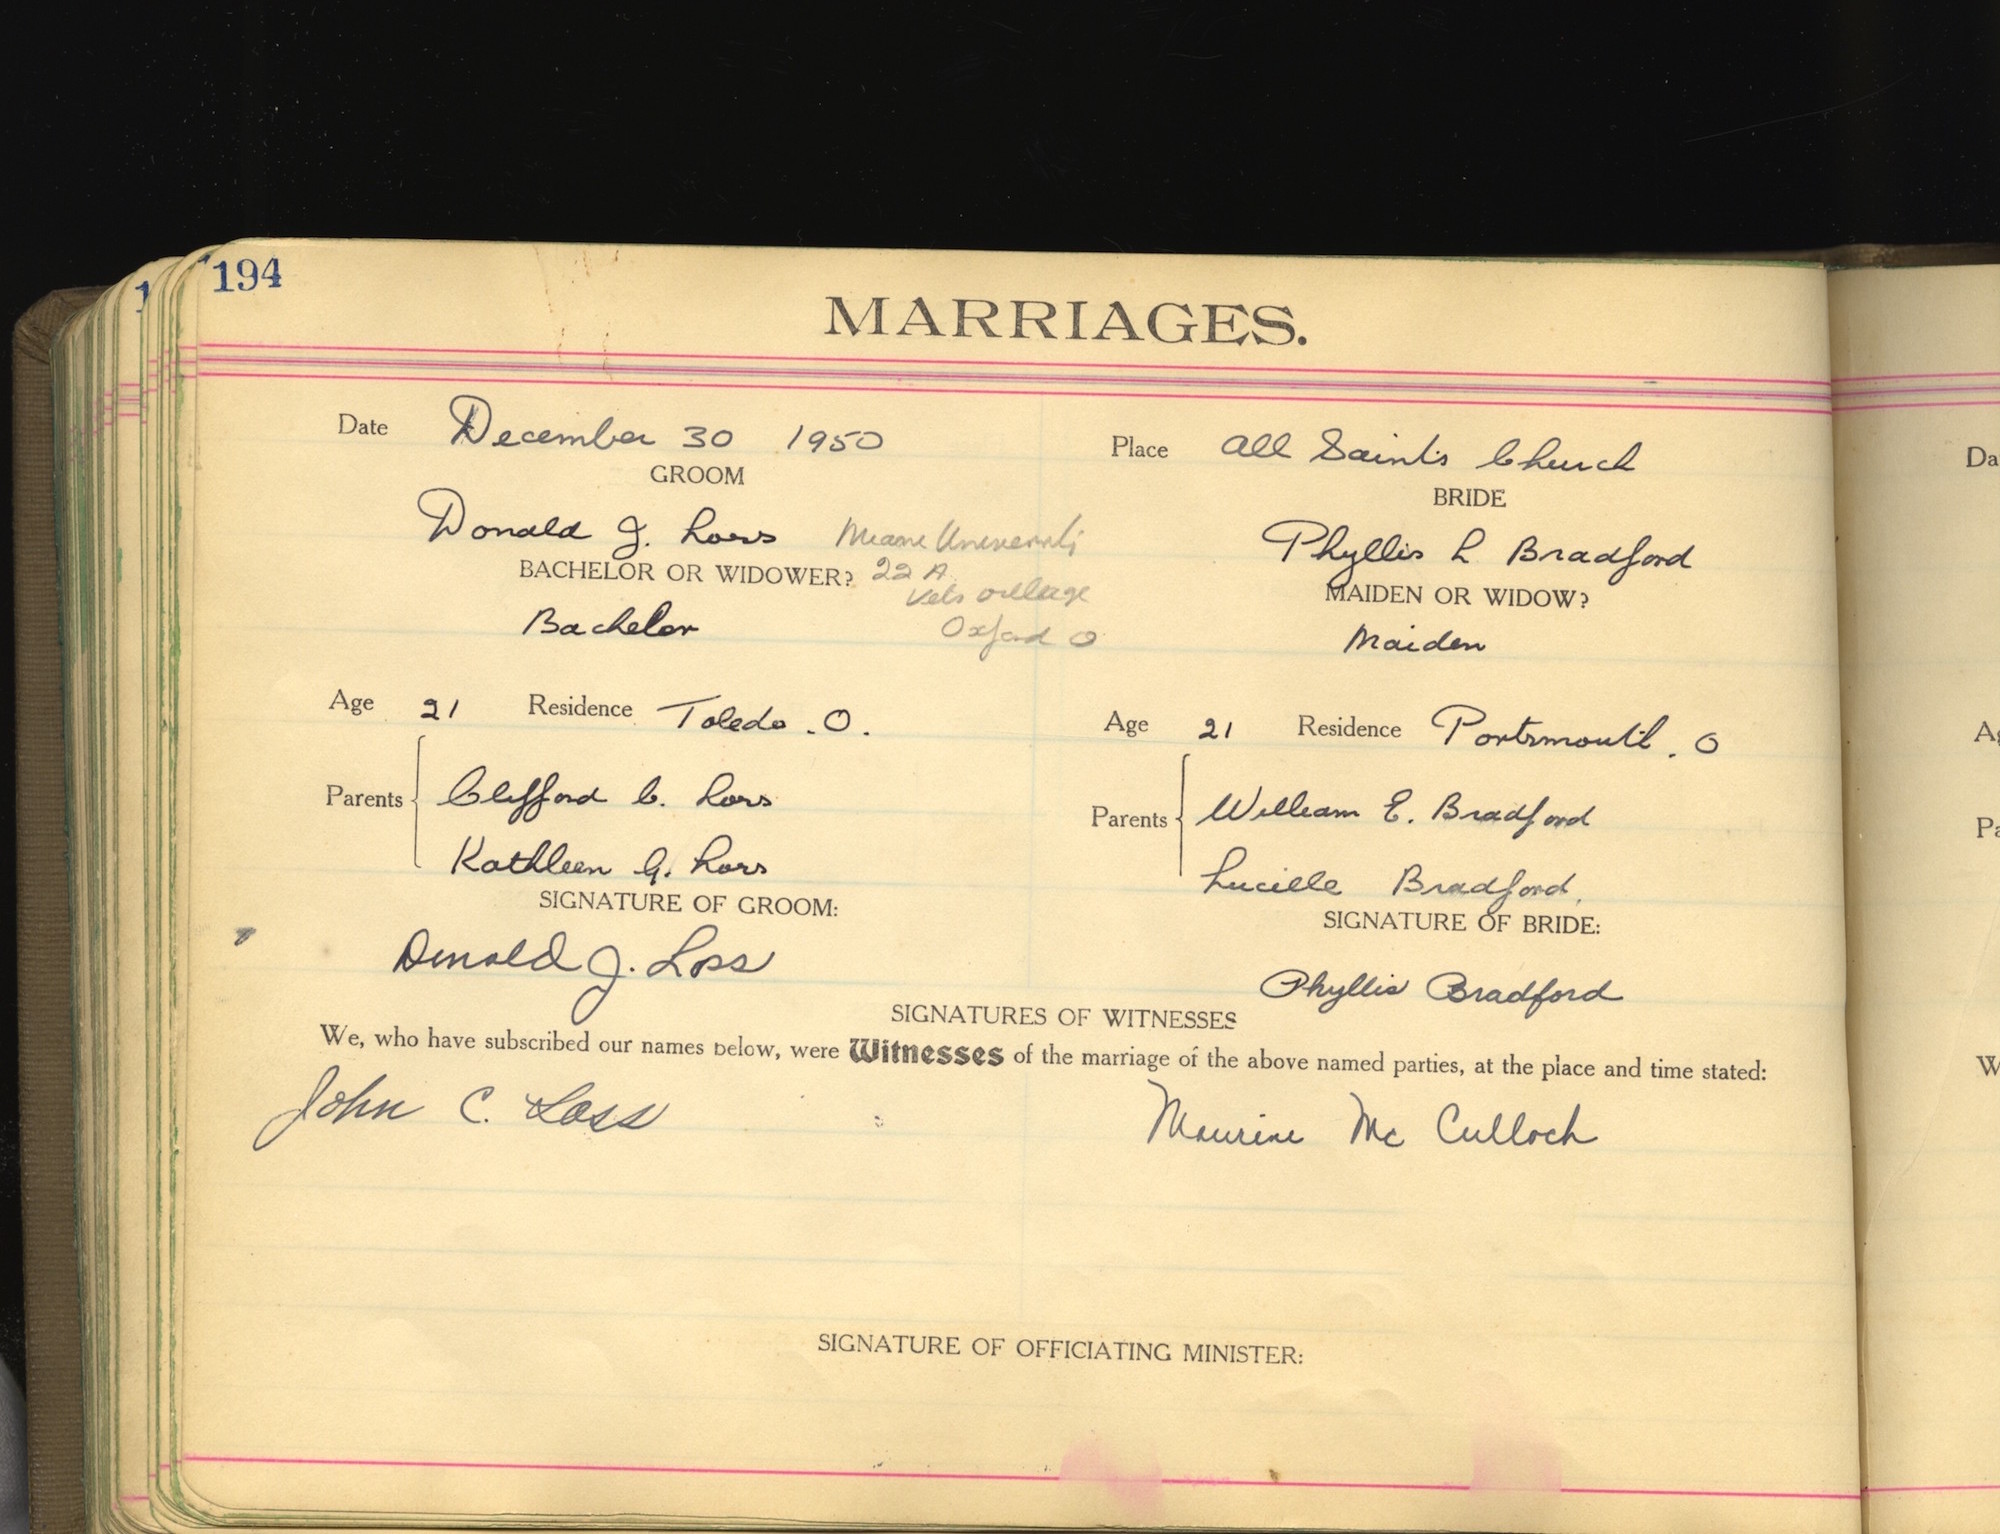 194
1
MARRIAGES.
Date December 30 1950
Place All Saints Church
GROOM
BRIDE
Donald J. Loss Miami University
Phyllis L Bradford
BACHELOR OR WIDOWER? 22 A
Vets village
MAIDEN OR WIDOW?
Bachelor
Oxford O
Maiden
Age 21 Residence Toledo . O.
Age 21 Residence Portsmouth . O
Parents
Clifford C. Loss
Kathleen G. Loss
Parents
William E. Bradford
Lucille Bradford.
SIGNATURE OF GROOM:
SIGNATURE OF BRIDE:
Donald J. Loss
Phyllis Bradford
SIGNATURES OF WITNESSES
We, who have subscribed our names below, were Witnesses of the marriage of the above named parties, at the place and time stated:
John C. Loss
Maurine Mc Culloch
SIGNATURE OF OFFICIATING MINISTER:
Da
Ag
Pa
W